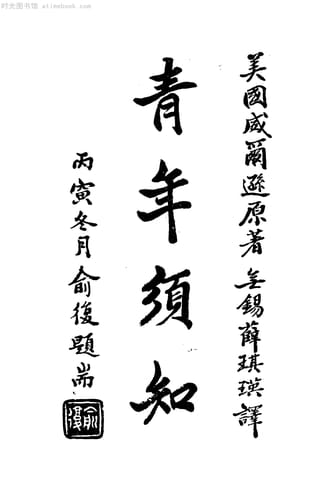 时光图书馆 - atimebook.com
美國威爾遜原著 無錫薛琪瑛譯
青年須知
丙寅冬月俞復題耑
俞復